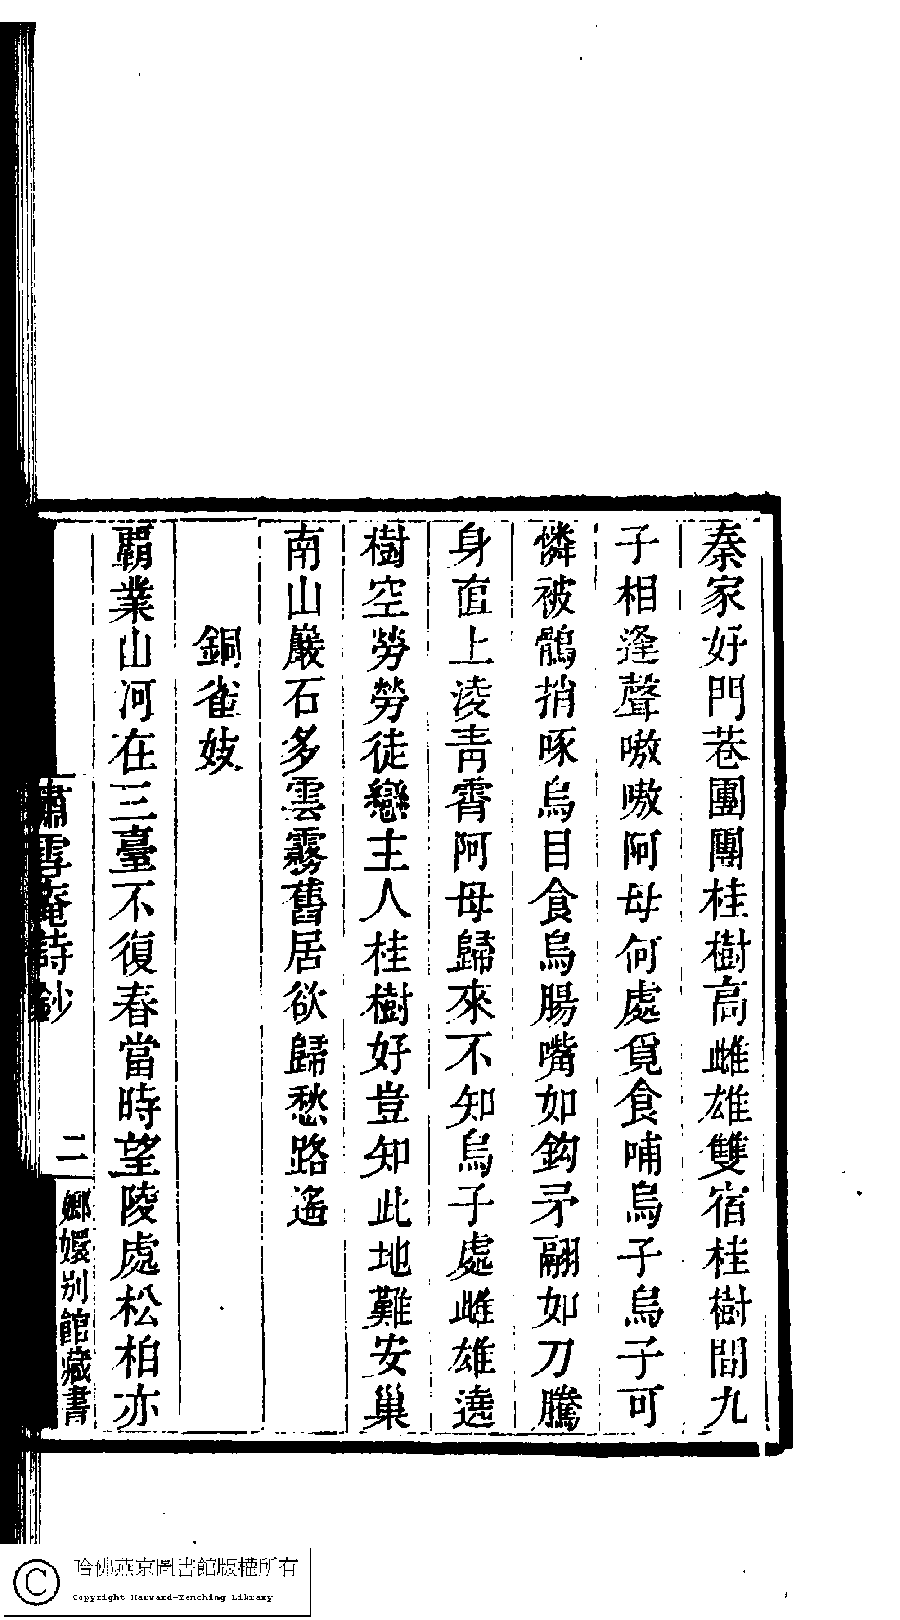 秦家好門巷團團桂樹高雌雄雙宿桂樹間九
子相逢聲嗷嗷阿母何處覓食哺烏子烏子可
憐被鶻捎啄烏目食烏腸嘴如鈎矛翮如刀騰
身直上淩青霄阿母歸來不知烏子處雌雄遶
樹空勞勞徒戀主人桂樹好豈知此地難安巢
南山巖石多雲霧舊居欲歸愁路遙
銅雀妓
覇業山河在三臺不復春當時望陵處松柏亦
嘯雪庵詩鈔
二
嫏嬛別館藏書
哈佛燕京圖書館版權所有
Copyright Harvard-Yenching Library